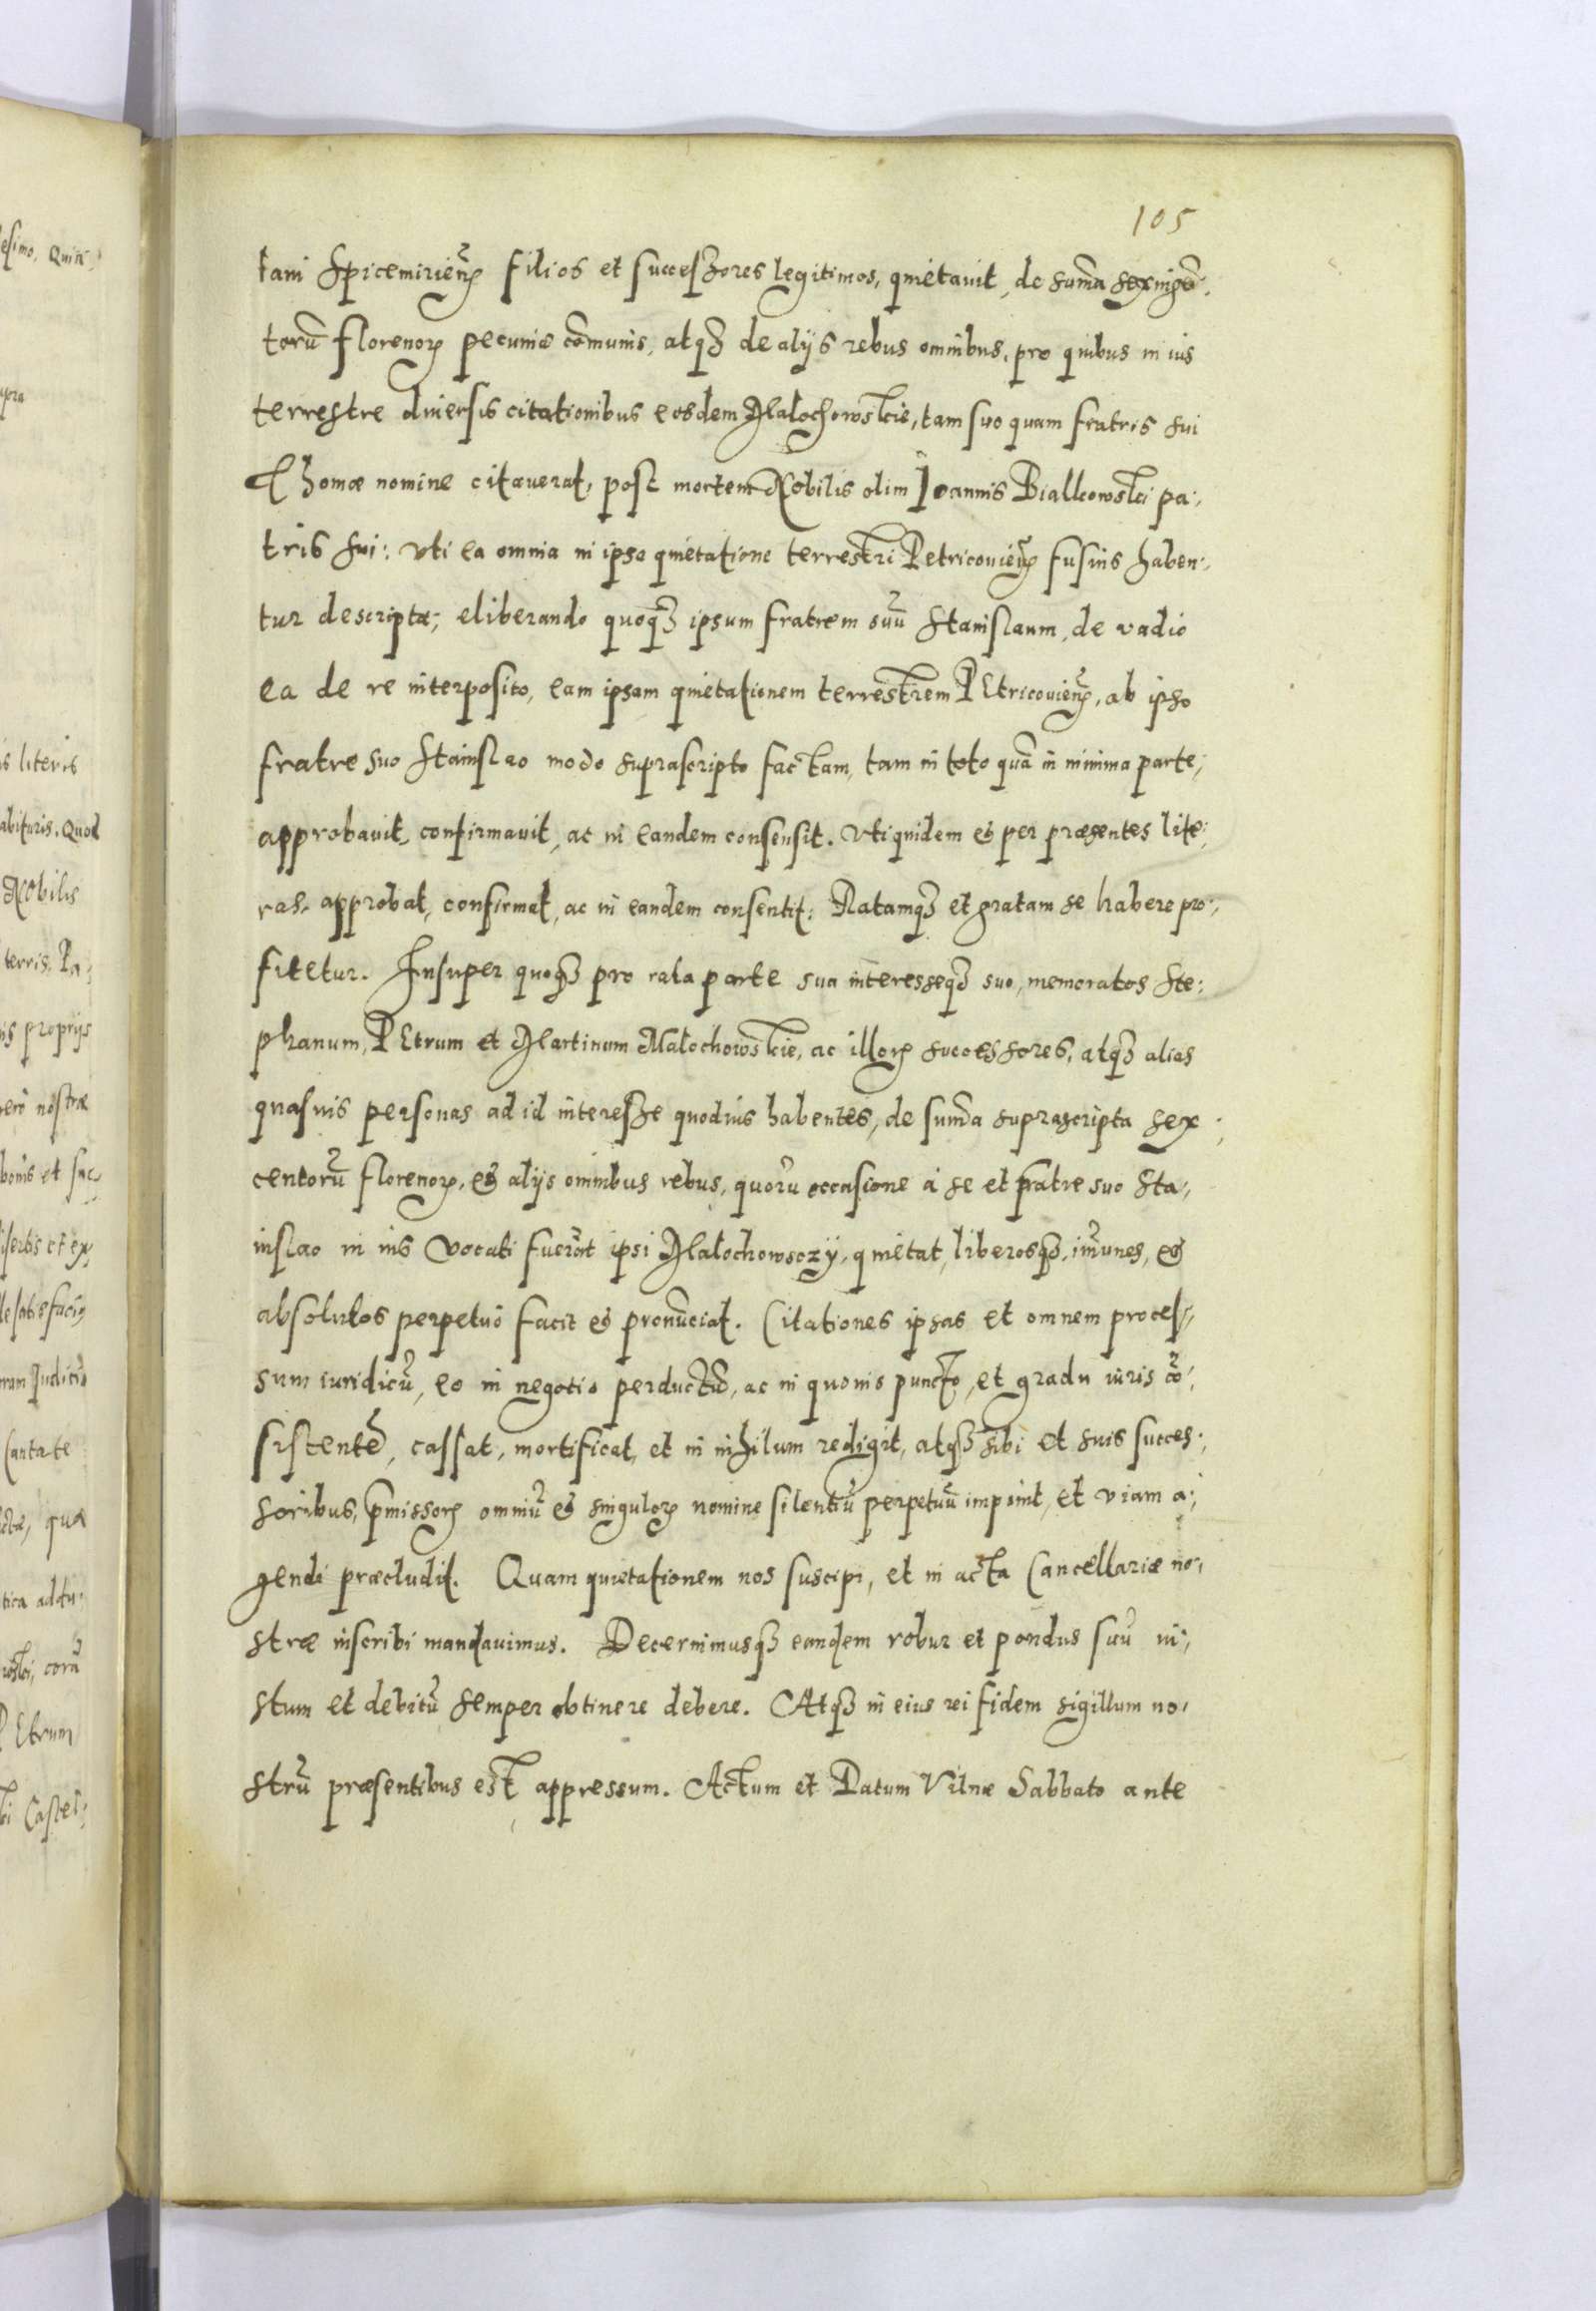 105
tani Spicemirien̄ filios et successores legitimos, quietauit, de sum̄a sexingē-
torū florenoꝝ pecuniæ com̄unis, atqꝫ de alijs rebus omnibus, pro quibus in ius
terrestre diuersis citationibus eosdem Małochowskie, tam suo quam fratris sui
Thomæ nomine citauerat, post mortem Nobilis olim Ioannis Białkowski pa-
tris sui: vti ea omnia in ipso quietatione terrestri Petricouien̄ fusius haben-
tur descripta; eliberando quoqꝫ ipsum fratrem suū Stanislaum, de vadio
ea de re interposito, eam ipsam quietationem terrestrem PEtricouien̄, ab ipso
fratre suo Stanislao modo suprascripto factam, tam in toto quā in minima parte,
approbauit, confirmauit, ac in eandem consensit. Vti quidem & per præsentes lite-
ras approbat, confirmat, ac in eandem consentit: Ratamqꝫ et gratam se habere pro-
fitetur. Insuper quoqꝫ pro rata parte sua interesseqꝫ suo, memoratos Ste-
phanum, PEtrum et Martinum Małochowskie, ac illoꝝ successores, atqꝫ alias
quasuis personas ad id interesse quoduis habentes, de sum̄a suprascripta sex-
centorū florenoꝝ, & alijs omnibus rebus, quorū occasione à se et fratre suo Sta-
nislao in ius vocati fuerāt ipsi Małochowsczÿ, quietat, liberosqꝫ, im̄unes, &
absolutos perpetuò facit & pronūciat. Citationes ipsas et omnem proces-
sum iuridicū, eo in negotio perductū, ac in quouis puncto, et gradu iuris cō-
sistentē, cassat, mortificat, et in nihilum redigit, atqꝫ sibi et suis succes-
soribus, p̄missoꝝ omniū & singuloꝝ nomine silentiū perpetuū imponit, et viam a-
gendi præcludit. Quam quietationem nos suscipi, et in acta Cancellariæ no-
stræ inscribi mandauimus. Decernimusqꝫ eandem robur et pondus suū iu-
stum et debitū semper obtinere debere. Atqꝫ in eius rei fidem sigillum no-
strū præsentibus est appressum. Actum et Datum Vilnæ Sabbato ante